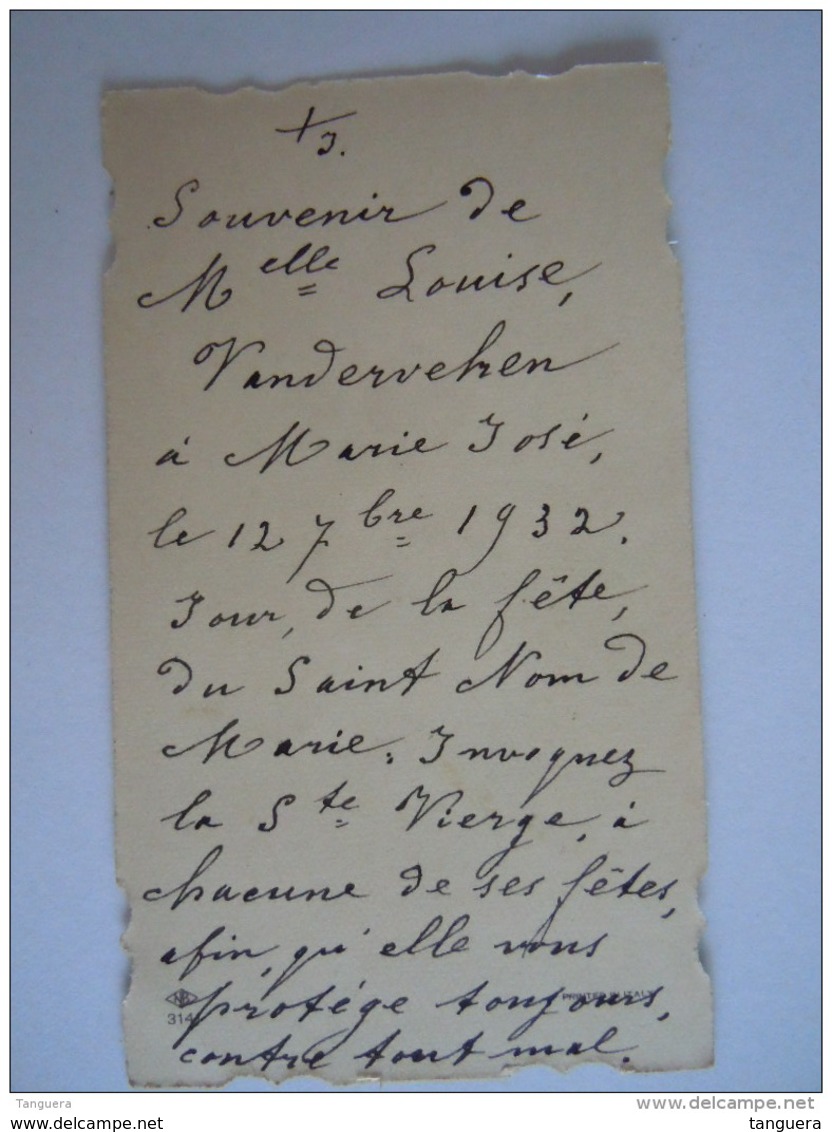 +
J.
Souvenir de
Melle Louise,
Vandervehen
à Marie José,
le 12 7bre 1932.
Jour, de la fête,
du Saint Nom de
Marie. Invoquez
la Ste Vierge, à
chacune de ses fêtes,
afin, qu'elle vous
protége toujours,
contre tout mal.
NB
314
PRINTED IN ITALY
Tanguera
delcampe.net
tanguera